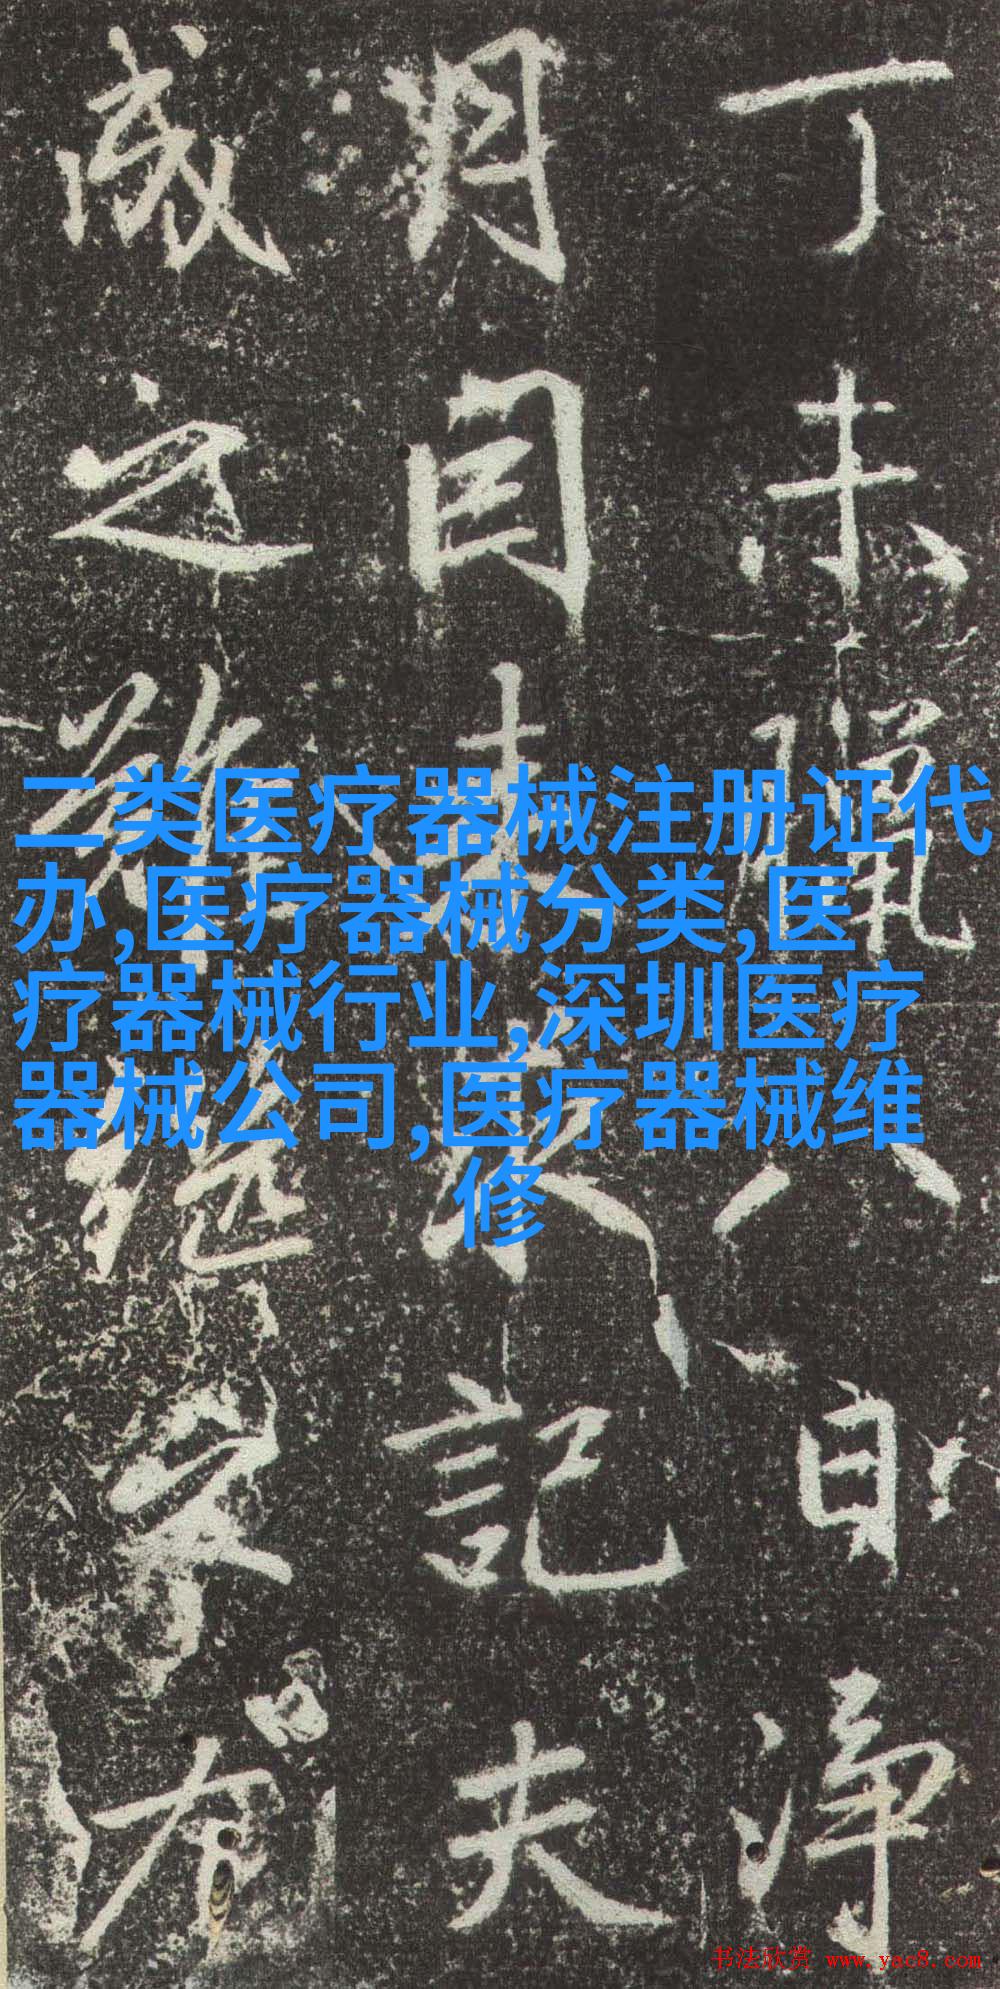 丁未臘八日淨
月因來京記夫
成之難繼家有
二类医疗器械注册证代
办,医疗器械分类,医
疗器械行业,深圳医疗
器械公司,医疗器械维
修
书法欣赏 www.yac8.com